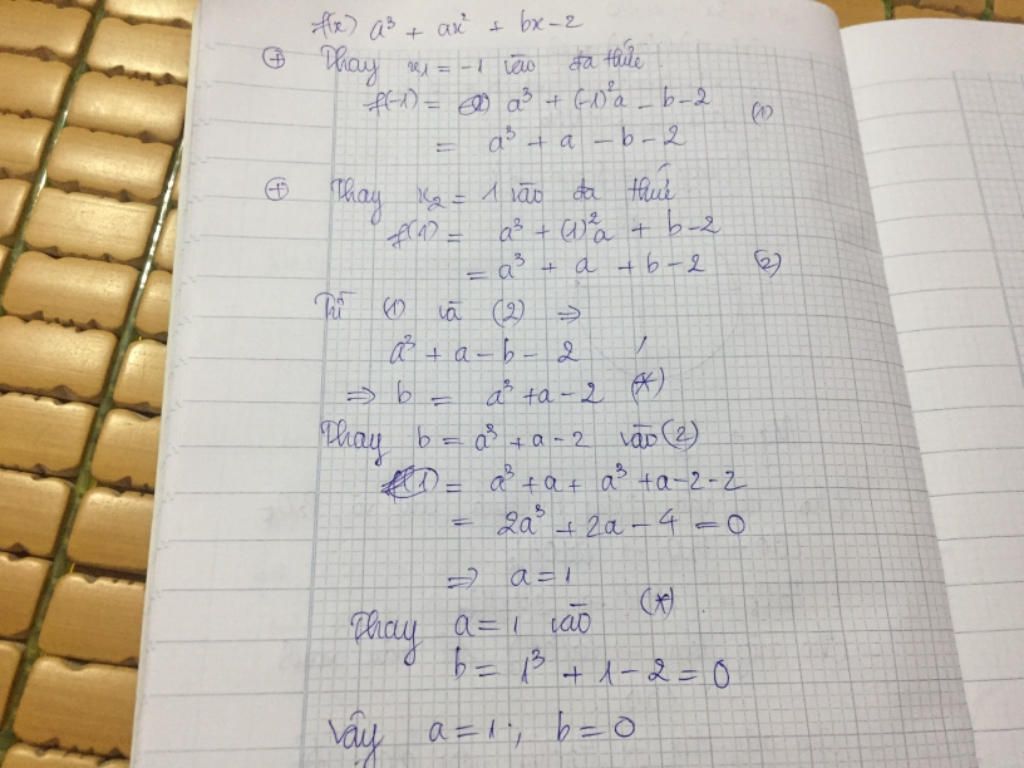 f(x) a³ + ax² + bx - 2
⊕ Thay x₁ = -1 vào đa thức
f(-1) = a³ + (-1)²a - b - 2
(1)
= a³ + a - b - 2
⊕ Thay x₂ = 1 vào đa thức
f(1) = a³ + (1)²a + b - 2
= a³ + a + b - 2 (2)
Từ (1) và (2) ⇒
a³ + a - b - 2
⇒ b = a³ + a - 2 (*)
Thay b = a³ + a - 2 vào (2)
f(1) = a³ + a + a³ + a - 2 - 2
= 2a³ + 2a - 4 = 0
⇒ a = 1
Thay a = 1 vào (*)
b = 1³ + 1 - 2 = 0
Vậy a = 1 ; b = 0